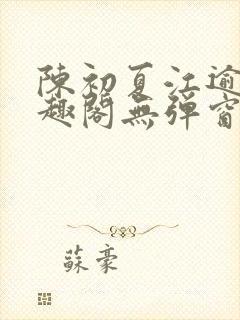 陳初夏江逾
趣閣無彈窗
蘇豪